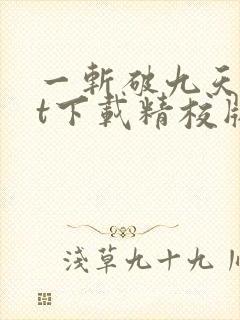 一斬破九天
t下載精校版
淺草九十九